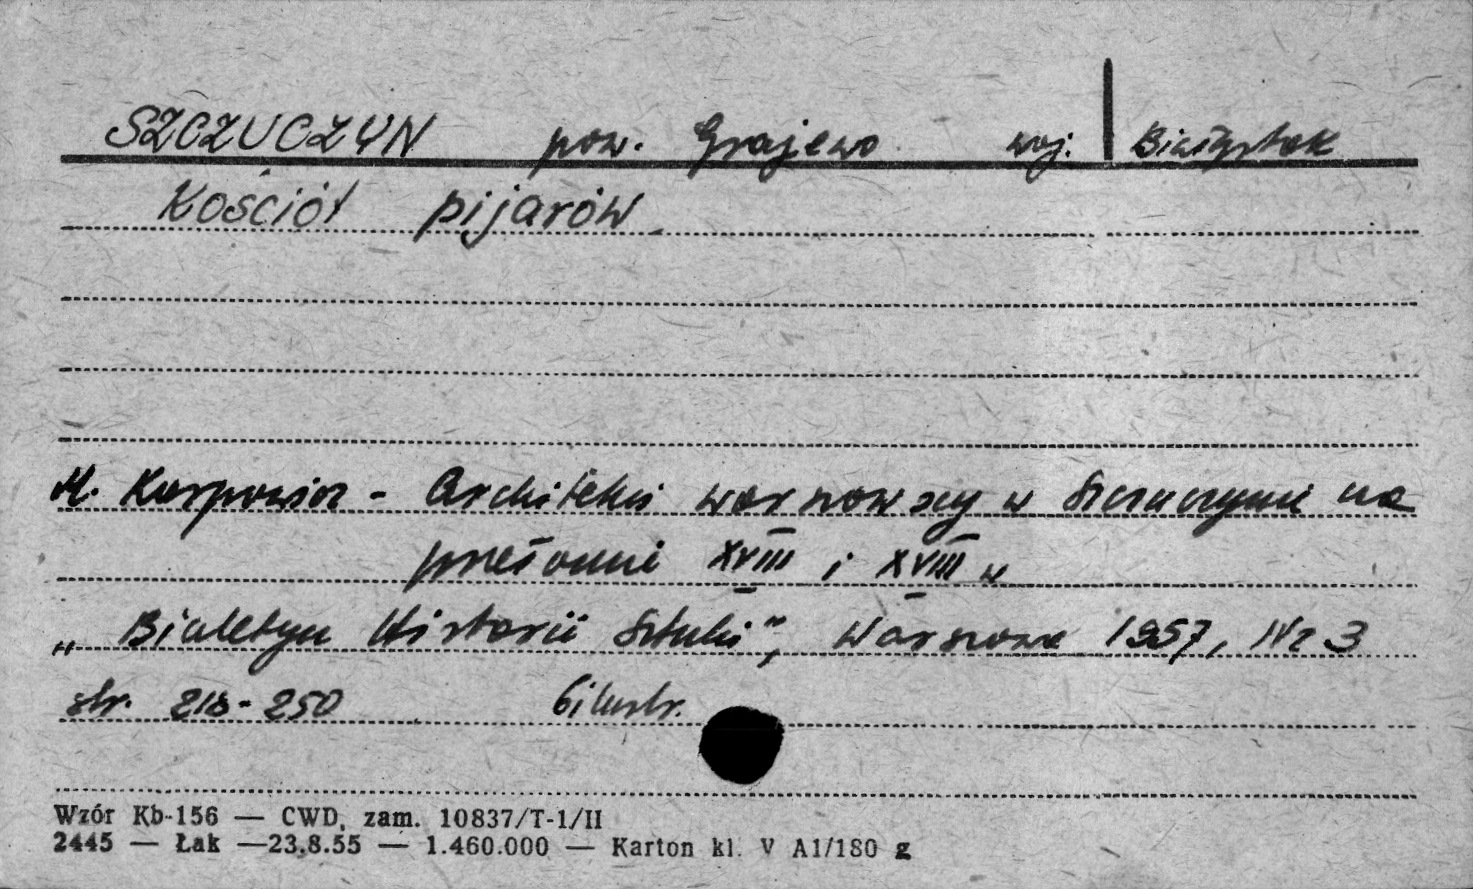 SZCZUCZYN pow. Grajewo woj. Białystok
Kościół pijarów
M. Karpowicz - Architekci warszawscy w Szczuczynie na
przełomie XVIII i XVIII w
„Biuletyn Historii Sztuki", Warszawa 1957, Nr 3
str. 218-250 6 ilustr.
Wzór Kb-156 — CWD, zam. 10837/T-1/II
2445 — Łak —23.8.55 — 1.460.000 — Karton kl. V A1/180 g